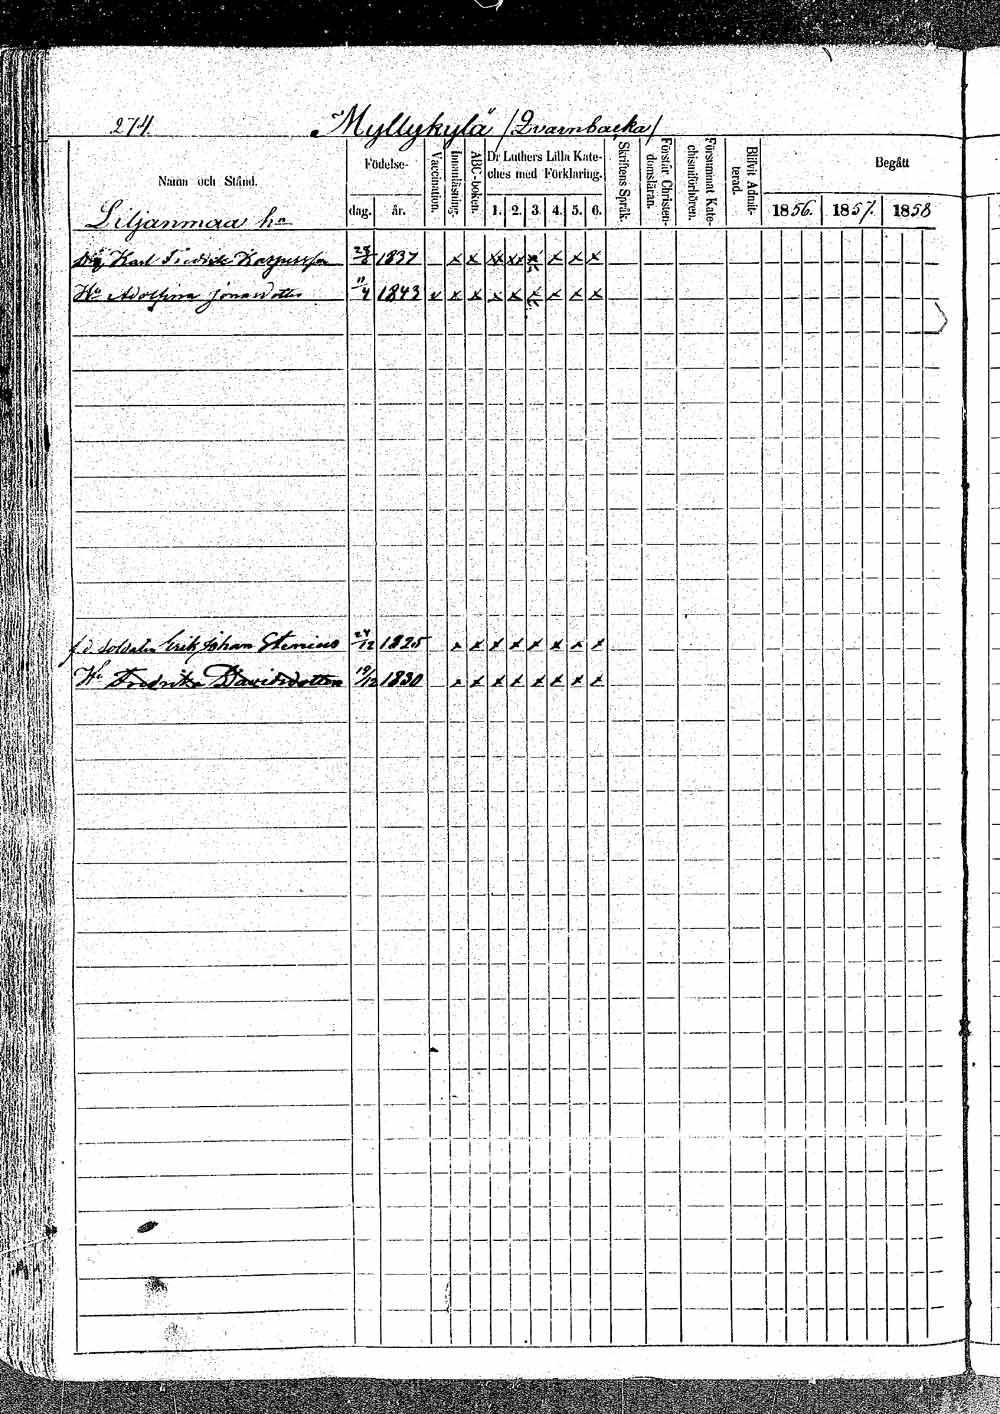 274. "Myllykylä" /Qvarnbacka/
Namn och Stånd.
Födelse-
dag. år.
Vaccination.
Innanläsning.
ABC-boken.
Dr Luthers Lilla Kate-
ches med Förklaring.
1. 2. 3. 4. 5. 6.
Skriftens Språk.
Förstår Christen-
domsläran.
Försummat Kate-
chismiförhören.
Blifvit Admit-
terad.
Begått
1856. 1857. 1858
Liljanmaa hn
Karl Fredrik Kaspersson 28/8 1837 x x xx xx x x x x
Hu Adolfina Jonasdotter 11/4 1843 v x x x x x x x x
f.d. Soldaten Erik Johan Stenius 24/12 1825 x x x x x x x x
Hu Fredrika Davidsdotter 19/12 1830 x x x x x x x x